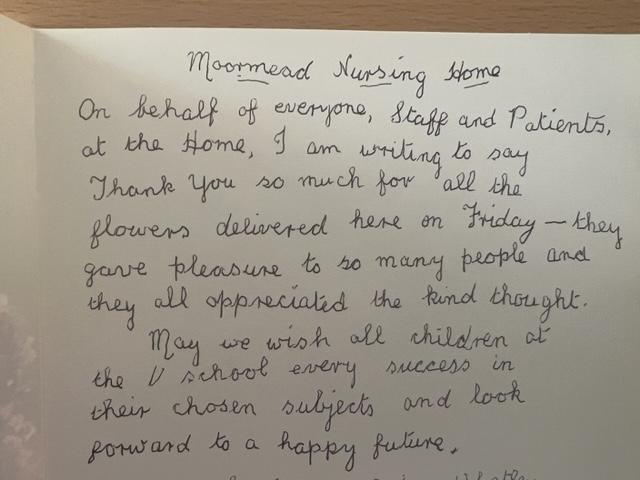 Moormead Nursing Home
On behalf of everyone, Staff and Patients,
at the Home, I am writing to say
Thank You so much for all the
flowers delivered here on Friday — they
gave pleasure to so many people and
they all appreciated the kind thought.
May we wish all children at
the V school every success in
their chosen subjects and look
forward to a happy future.